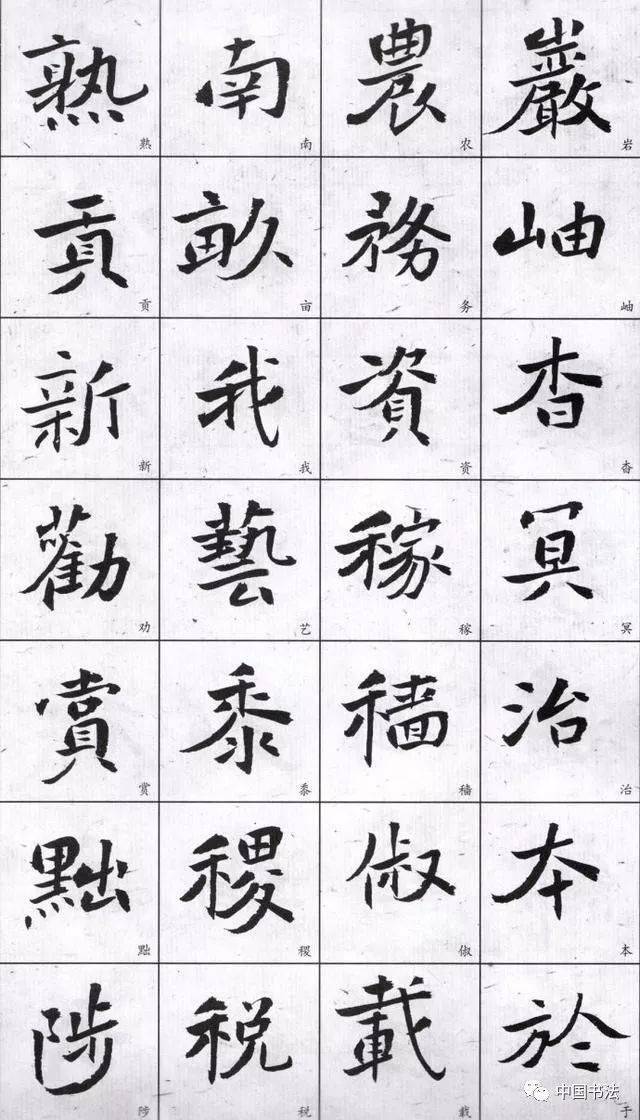 巖岫杳冥治本於
岩岫杳冥治本
農務資稼穡俶載
农务资稼穑俶载
南畝我藝黍稷税
南亩我艺黍稷税
熟貢新勸賞黜陟
熟贡新劝赏黜陟
中国书法